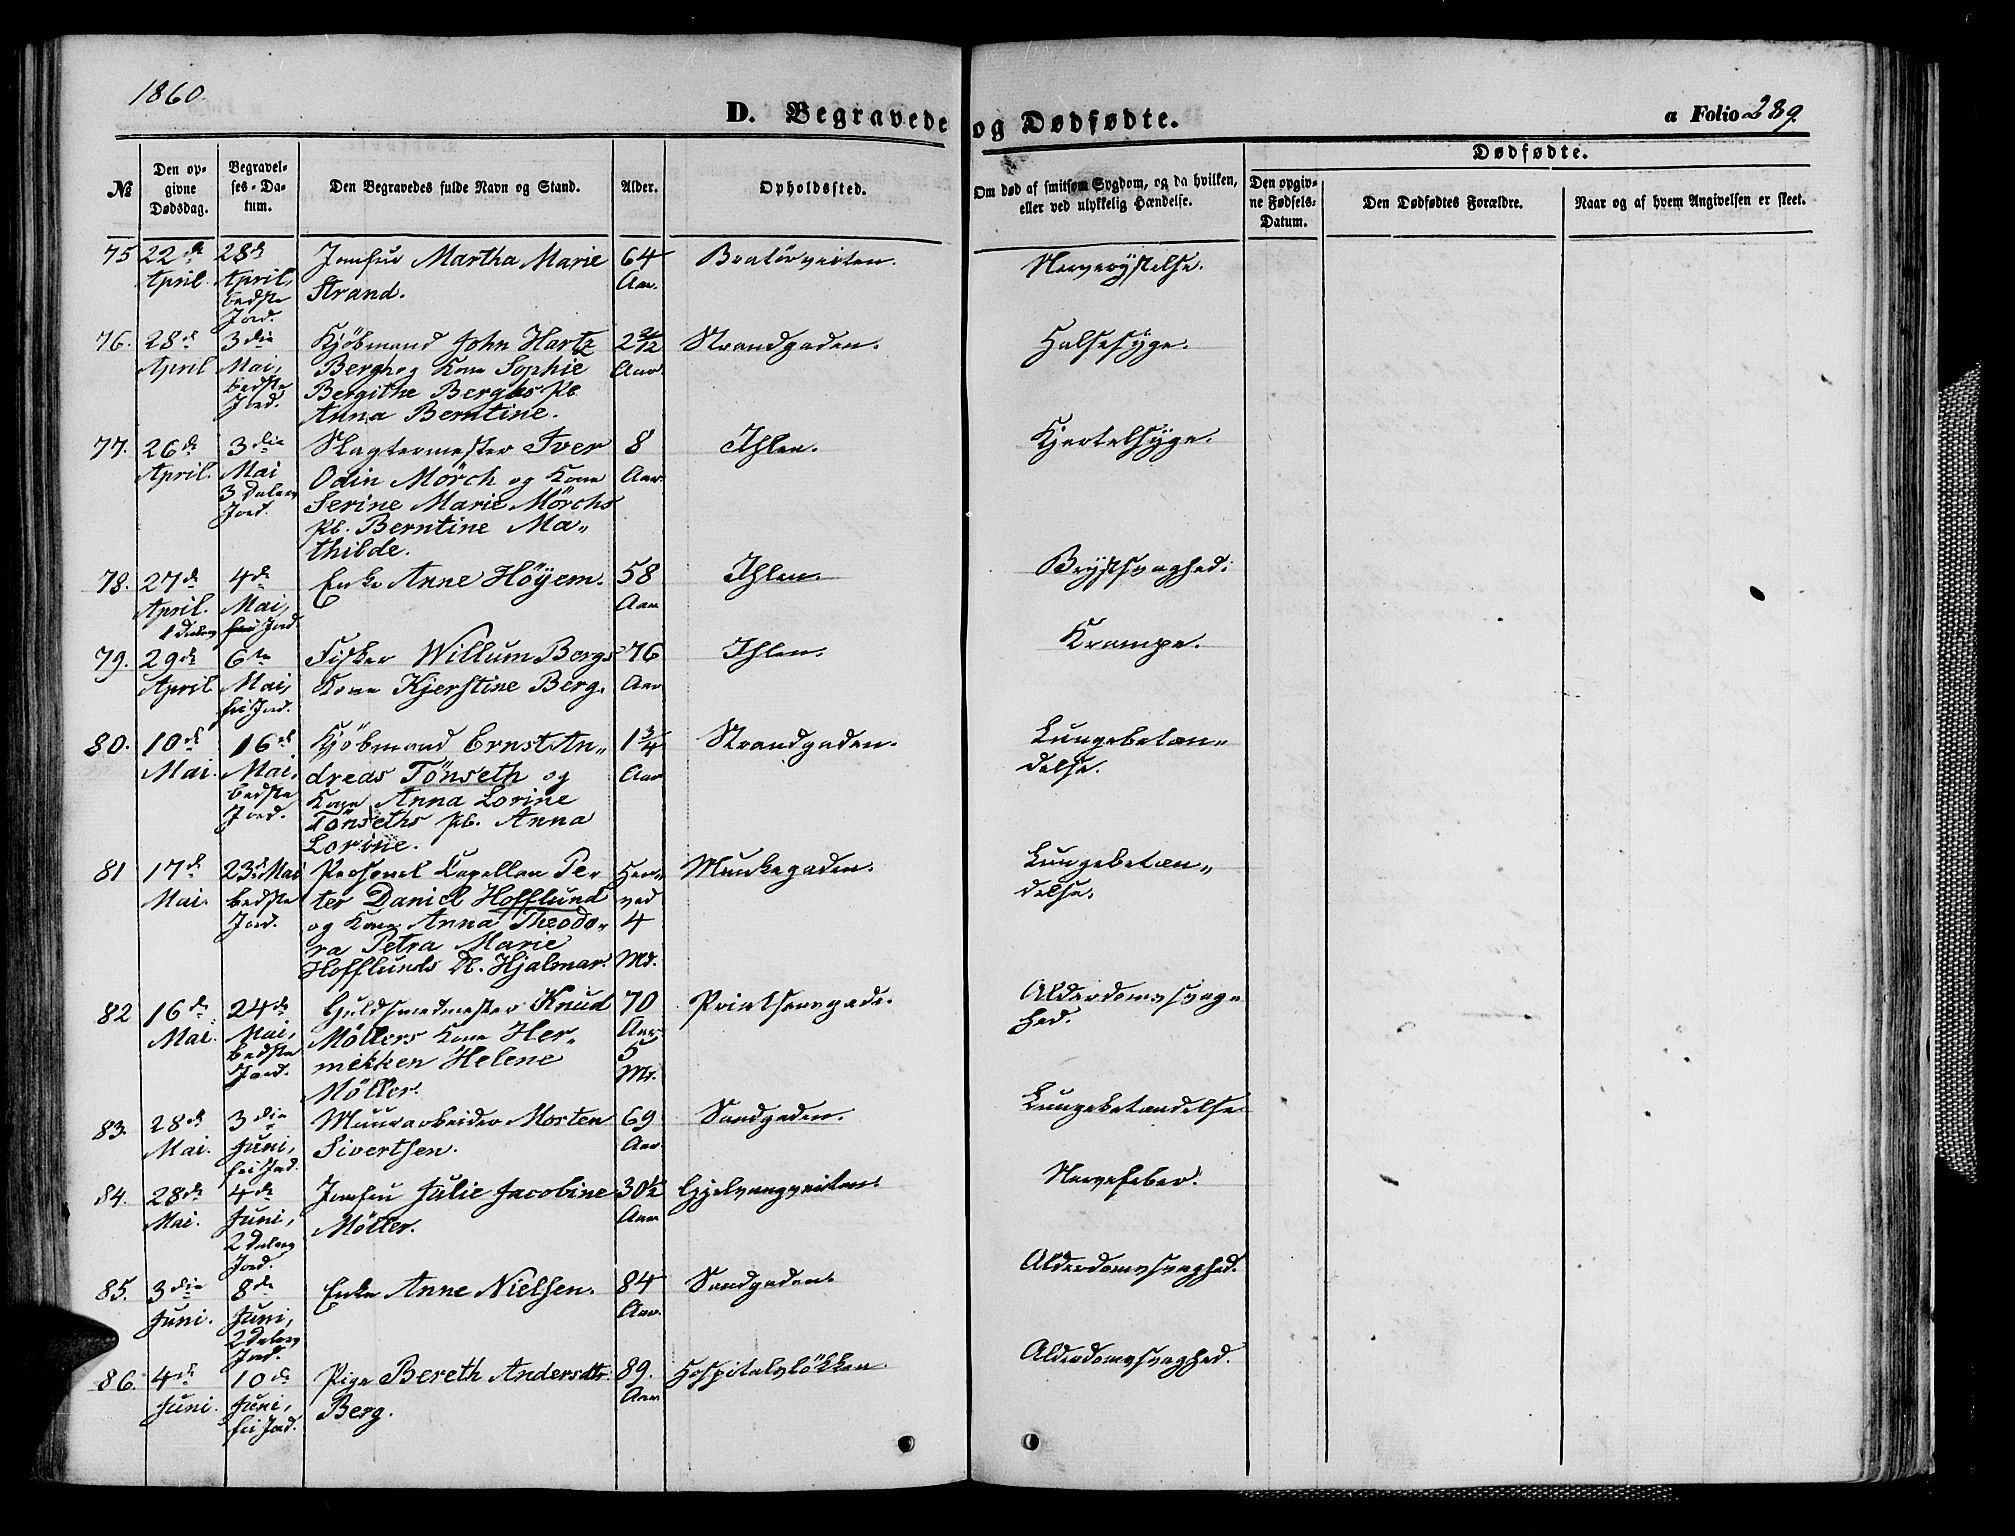 1860.
D. Begravede og Dødfødte.
a Folio 289
№
Den opgivne Dødsdag.
Begravelses-Datum.
Den Begravedes fulde Navn og Stand.
Alder.
Opholdssted.
Om død af smitsom Sygdom, og da hvilken, eller ved ulykkelig Hændelse.
Dødfødte.
Den opgivne Fødsels-Datum.
Den Dødfødtes Forældre.
Naar og af hvem Angivelsen er skeet.
75 22de 28de Jomfru Martha Marie 64 Bratörveiten. Nerverystelse.
April. April, Strand. Aar.
bedste
Jord.
76. 28de 3die Kjöbmand John Hartz 2 2/12 Strandgaden. Halsesyge.
April Mai, Berg og Kone Sophie Aar.
bedste Bergithe Bergs Pb.
Jord. Anna Berntine.
77. 26de 3die Slagtermester Iver 8 Ihlen. Kjertelsyge.
April. Mai Odin Mörch og Kone Aar
3 Dalers Serine Marie Mörchs
Jord. Pb. Berntine Ma„
thilde.
78. 27de 4de Enke Anne Höyem. 58 Ihlen. Brystsvaghed.
April. Mai, Aar
1 Dalers fri Jord.
79. 29de 6te Fisker Willum Bergs 76 Ihlen. Krampe.
April Mai, Kone Kjerstine Berg. Aar
fri Jord.
80. 10de 16de Kjöbmand Ernst An„ 1 3/4 Strandgaden. Lungebetæn„
Mai. Mai, dreas Tönseth og Aar delse.
bedste Kone Anna Lorine
Jord. Tönseths Pb. Anna
Lorine.
81 17de 23de Mai Personel Capellan Pe- Hen„ Munkegaden. Lungebetæn„
Mai. bedste ter Daniel Hofflund ved delse.
Jord. og Kone Anna Theodo„ 4
ra Petra Marie
Hofflunds Db. Hjalmar. Md.
82 16de 24de Guldsmedmester Knud 70 Prindsensgade. Alderdomssvag„
Mai. Mai, Möllers Kone Her„ Aar hed.
bedste mikken Helene 5
Jord. Möller. Md.
83. 28de 3die Muurarbeider Morten 69 Sandgaden. Lungebetændelse
Mai. Juni, Sivertsen. Aar
fri Jord.
84. 28de 4de Jomfru Julie Jacobine 30 1/2 Gjelvangveiten. Nervefeber.
Mai. Juni, Möller. Aar
2 Dalers
Jord.
85. 3die 8de Enke Anne Nielsen. 84 Sandgaden. Alderdomssvaghed.
Juni. Juni, Aar.
2 Dalers
Jord.
86. 4de 10de Pige Bereth Andersdtr. 89. Hospitalslökken. Alderdomssvaghed.
Juni. Juni, Berg. Aar
fri Jord.